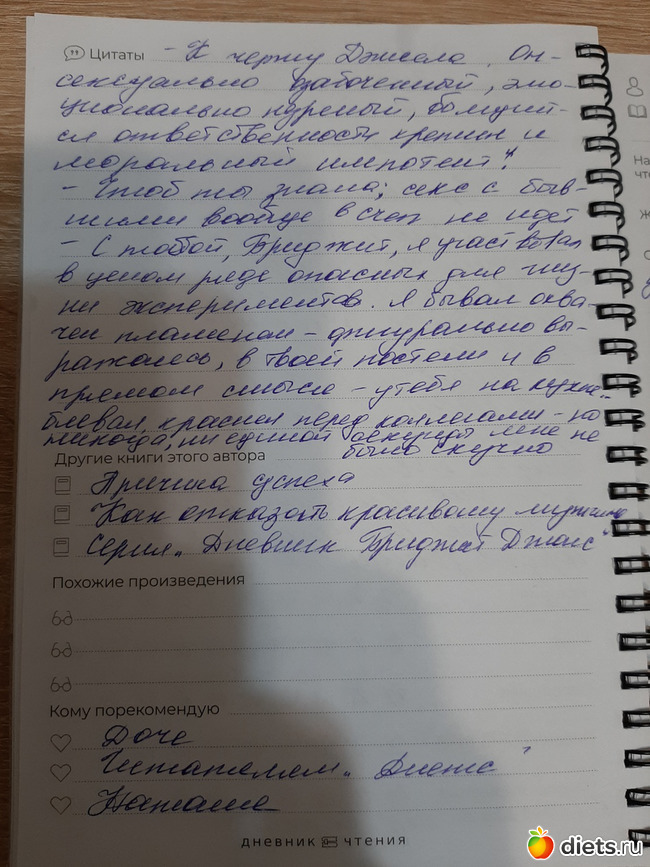 Цитаты - К черту Джосела. Он-
сексуально озабоченный, эмо-
ционально нудный, боящий-
ся ответственности кретин и
моральный импотент!
- Чтоб ты знала; секс с быв-
шими вообще в счет не идет
- С тобой, Бриджит, я участвовал
в целом ряде опасных для жиз-
ни экспериментов. Я бывал охва-
чен пламенем - фигурально вы-
ражаясь, в твоей постели и в
прямом смысле - у тебя на кухне..
блевал, краснел перед коллегами - но
никогда, ни единой секунды мне не
было скучно
Другие книги этого автора
Причина успеха
Как отказать красивому мужчине
Серия „Дневник Бриджит Джонс"
Похожие произведения
Кому порекомендую
Доче
Читателям „Диетс"
Наташе
дневник чтения
diets.ru